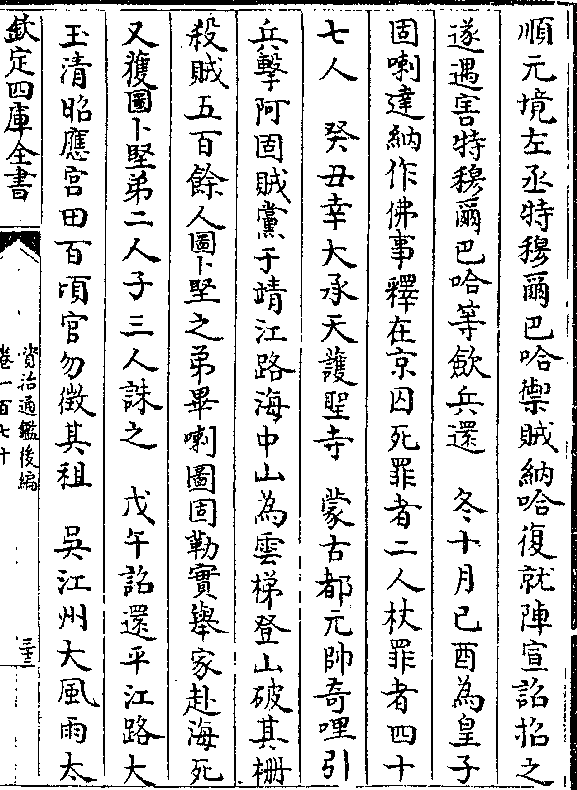 順元境左丞特穆爾巴哈禦賊納哈復就陣宣詔招之
遂遇害特穆爾巴哈等斂兵還　冬十月己酉為皇子
固喇達納作佛事釋在京囚死罪者二人杖罪者四十
七人　癸丑幸大承天護聖寺　蒙古都元帥奇哩引
兵擊阿固賊黨于靖江路海中山為雲梯登山破其柵
殺賊五百餘人圖卜堅之弟畢喇圖固勒實舉家赴海死
又獲圖卜堅弟二人子三人誅之　戊午詔還平江路大
玉清昭應宮田百頃官勿徵其租　吳江州大風雨太
欽定四庫全書
資治通鑑後編
卷一百七十
三十三